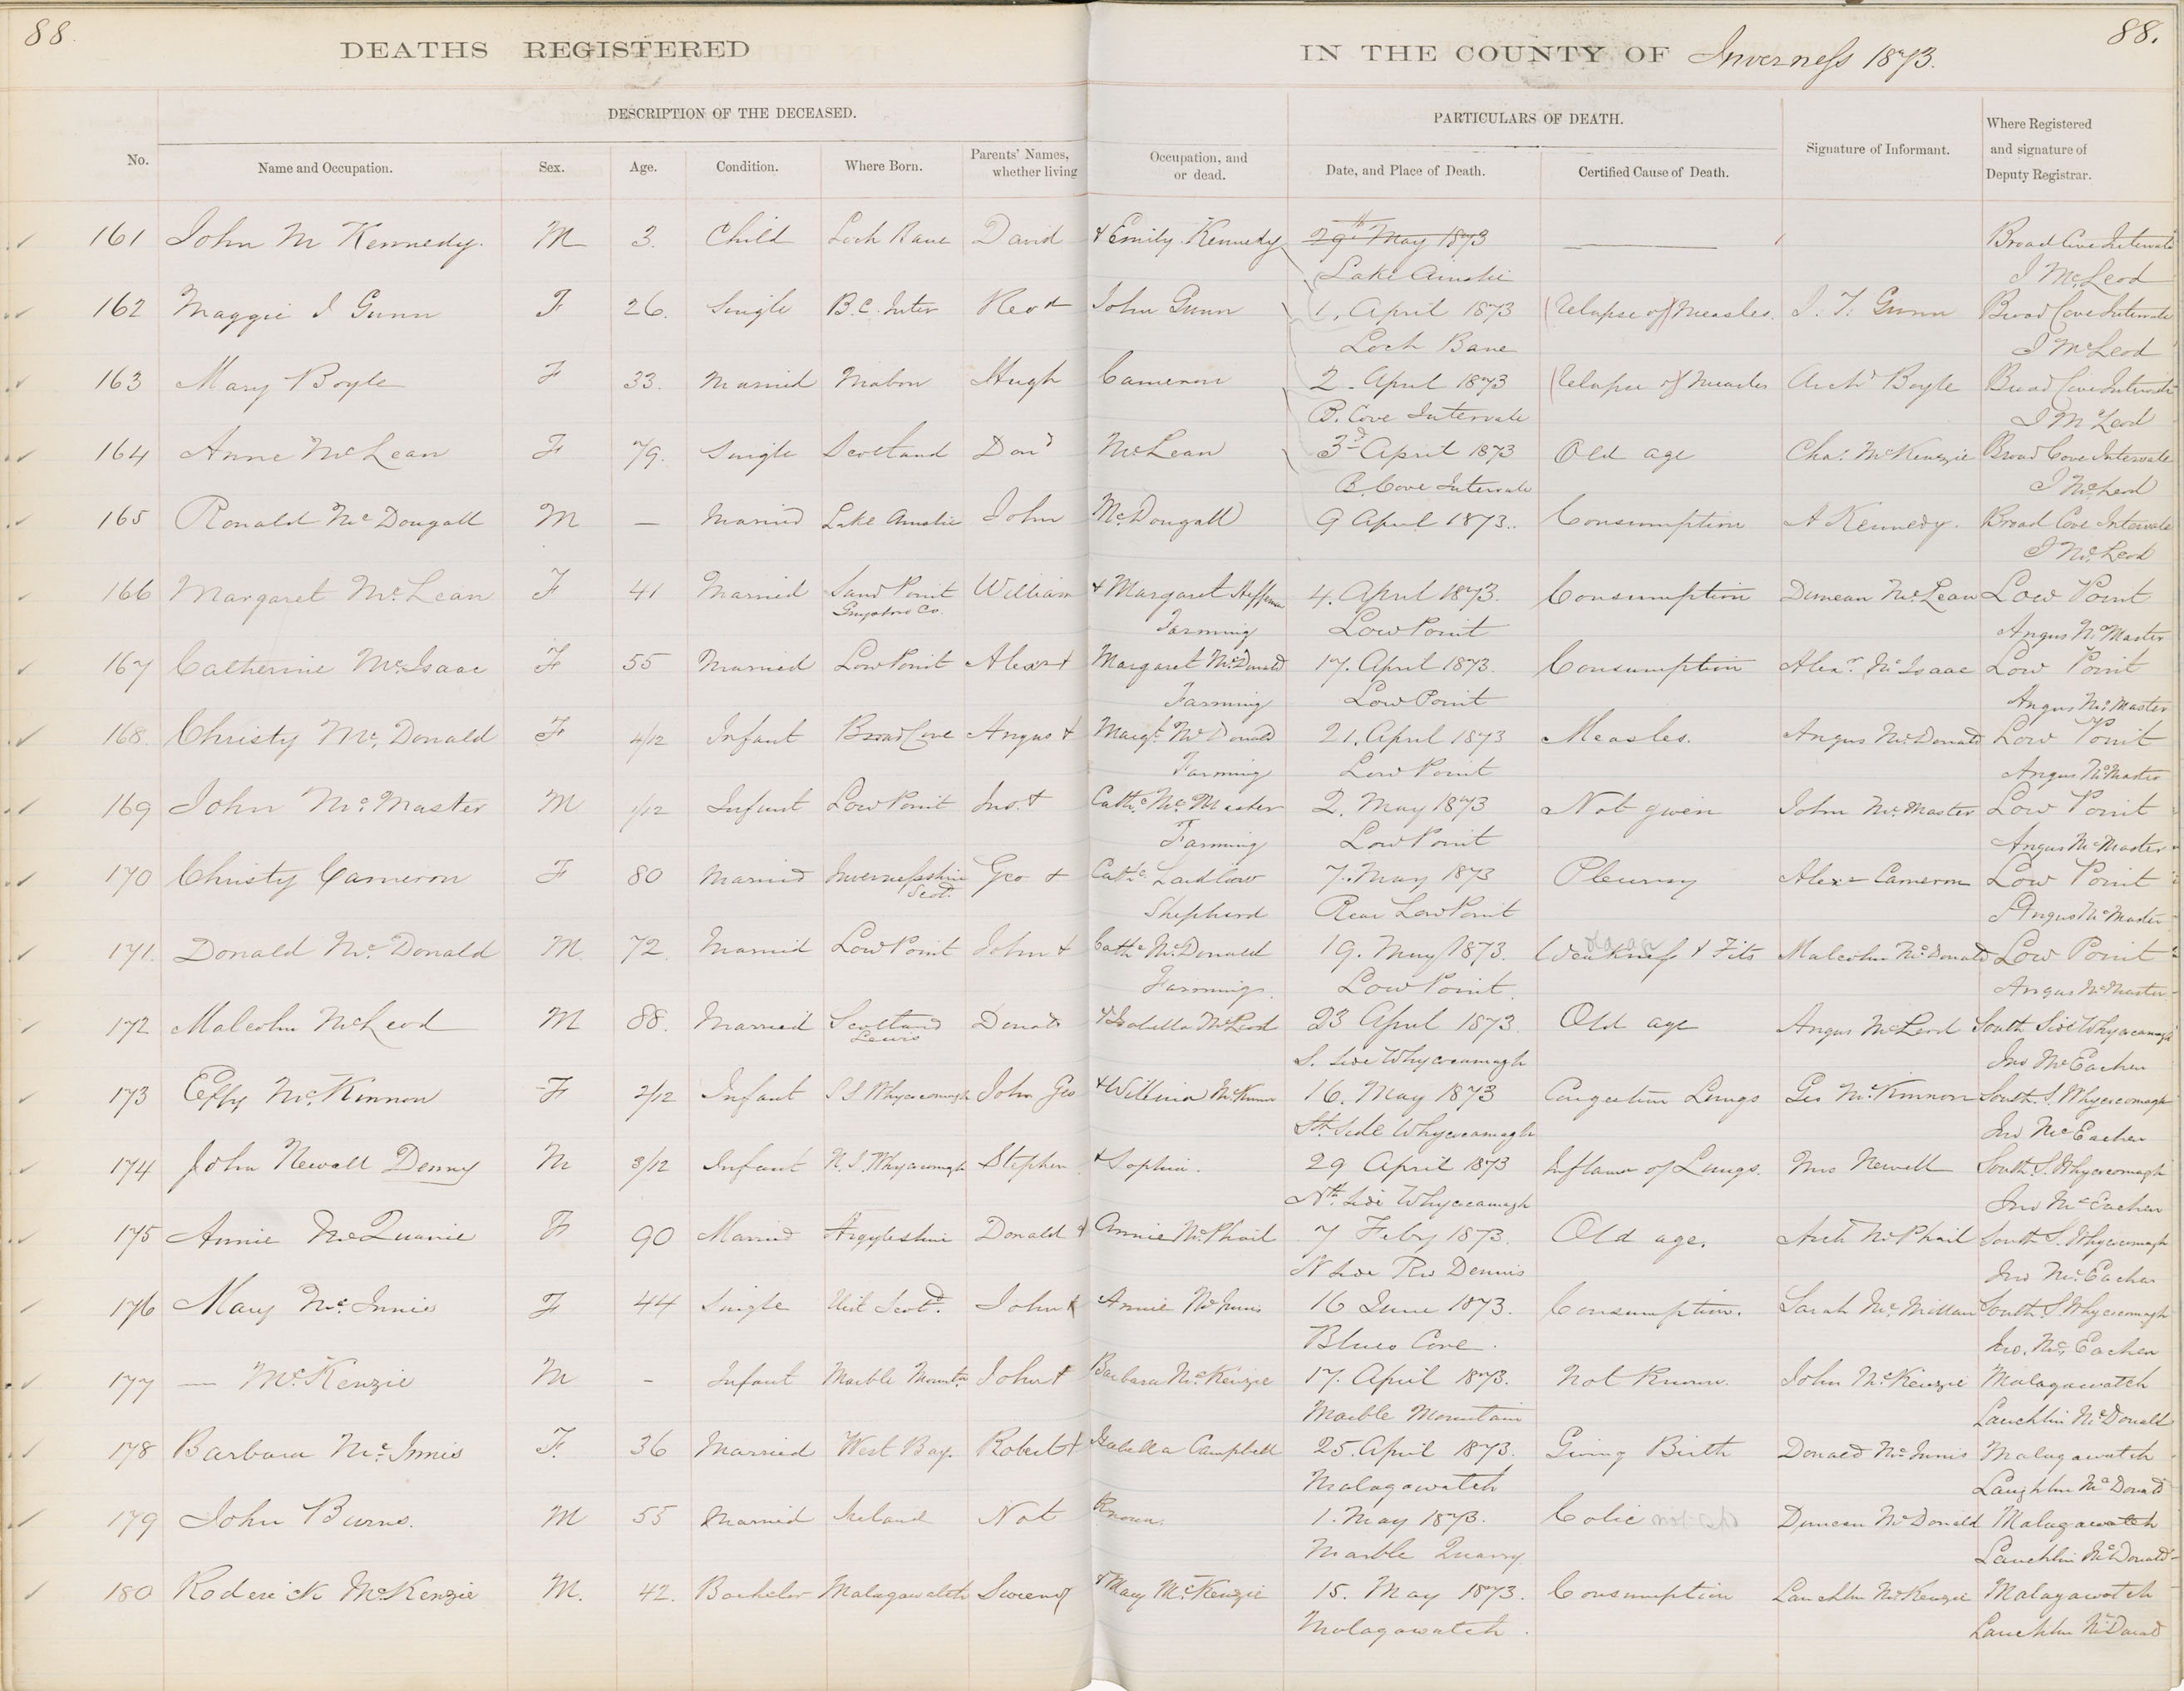 88.
88.
DEATHS REGISTERED IN THE COUNTY OF Inverness 1873.
DESCRIPTION OF THE DECEASED. PARTICULARS OF DEATH. Where Registered and signature of Deputy Registrar.
No. Name and Occupation. Sex. Age. Condition. Where Born. Parents' Names, whether living Occupation, and or dead. Date, and Place of Death. Certified Cause of Death. Signature of Informant.
161 John M Kennedy. M 3. Child Loch Bane David & Emily Kennedy 29th May 1873 Broad Cove Intervale
Lake Ainslie J McLeod
162 Maggie J Gunn F 26. Single B.C. Inter Revd John Gunn 1. April 1873 Relapse of Measles. J. T. Gunn Broad Cove Intervale
Loch Bane J McLeod
163 Mary Boyle F 33. Married Mabou Hugh Cameron 2. April 1873 Relapse of Measles Archd Boyle Broad Cove Intervale
B. Cove Intervale J McLeod
164 Anne McLean F 79. Single Scotland Dond McLean 3rd April 1873 Old age Chas. McKenzie Broad Cove Intervale
B. Cove Intervale J McLeod
165 Ronald McDougall M — Married Lake Ainslie John McDougall 9 April 1873. Consumption A Kennedy. Broad Cove Intervale
J McLeod
166 Margaret McLean F 41 Married Sand Point William & Margaret 4. April 1873. Consumption Duncan McLean Low Point
Guysboro Co. Farming Low Point Angus McMaster
167 Catherine McIsaac F 55 Married Low Point Alexr & Margaret McDonald 17. April 1873. Consumption Alexr. McIsaac Low Point
Farming Low Point Angus McMaster
168. Christy McDonald F 4/12 Infant Broad Cove Angus & Margt. McDonald 21. April 1873 Measles. Angus McDonald Low Point
Farming Low Point Angus McMaster
169 John McMaster M 1/12 Infant Low Point Jno. & Cathe McMaster 2. May 1873 Not given John McMaster Low Point
Farming Low Point Angus McMaster
170 Christy Cameron F 80 Married Invernessshire Geo & Cathe Laidlaw 7. May 1873 Pleurisy Alexr Cameron Low Point
Scotd. Shepherd Rear Low Point Angus McMaster
171. Donald McDonald M 72. Married Low Point John & Cathe McDonald 19. May 1873. Weakness & Fits Malcolm McDonald Low Point
Farming. Low Point. Angus McMaster
172 Malcolm McLeod M 88. Married Scotland Donald & Isabella McLeod 23 April 1873. Old age Angus McLeod South Side Whycocomagh
Lewis S. Side Whycocomagh Jno McEachen
173 Effy McKinnon F 2/12 Infant S S Whycocomagh John Geo & Willina McKinnon 16. May 1873 Congestion Lungs Geo McKinnon South. S. Whycocomagh
Sth Side Whycocomagh Jno McEachen
174 John Newall Denny M 3/12 Infant N. S. Whycocomagh Stephen & Sophia. 29 April 1873 Inflam of Lungs. Mrs Newell South. S. Whycocomagh
Nth. Side Whycocomagh Jno McEachen
175 Annie McQuarrie F 90 Married Argyleshire Donald & Annie McPhail 7 Feby 1873. Old age. Arch McPhail South S. Whycocomagh
N Side Riv Dennis Jno McEachen
176 Mary McInnis F 44 Single Uist Scotd. John & Annie McInnis 16 June 1873. Consumption. Sarah McMillan South. S. Whycocomagh
Blues Cove. Jno. McEachen
177 — McKenzie M - Infant Marble Mountn John & Barbara McKenzie 17. April 1873. Not Known. John McKenzie Malagawatch
Marble Mountain Lauchlin McDonald
178 Barbara McInnis F. 36 Married West Bay. Robert & Isabella Campbell 25. April 1873. Giving Birth Donald McInnis Malagawatch
Malagawatch Laughlin McDonald
179 John Burns. M 55 Married Ireland Not Known. 1. May 1873. Colic Duncan McDonald Malagawatch
Marble Quarry Lauchlin McDonald
180 Roderick McKenzie M. 42. Bachelor Malagawatch & Mary McKenzie 15. May 1873. Consumption Lauchlin McKenzie Malagawatch
Malagawatch. Lauchlin McDonald